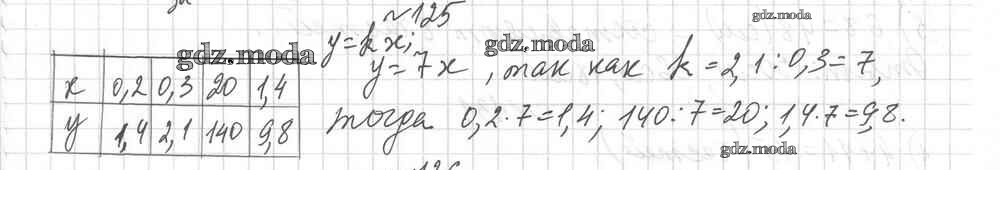 №125
gdz.moda
y=kx;
gdz.moda
gdz.moda
y=7x, так как k=2,1:0,3=7,
x 0,2 0,3 20 1,4
y 1,4 2,1 140 9,8
тогда 0,2·7=1,4; 140:7=20; 1,4·7=9,8.
gdz.moda